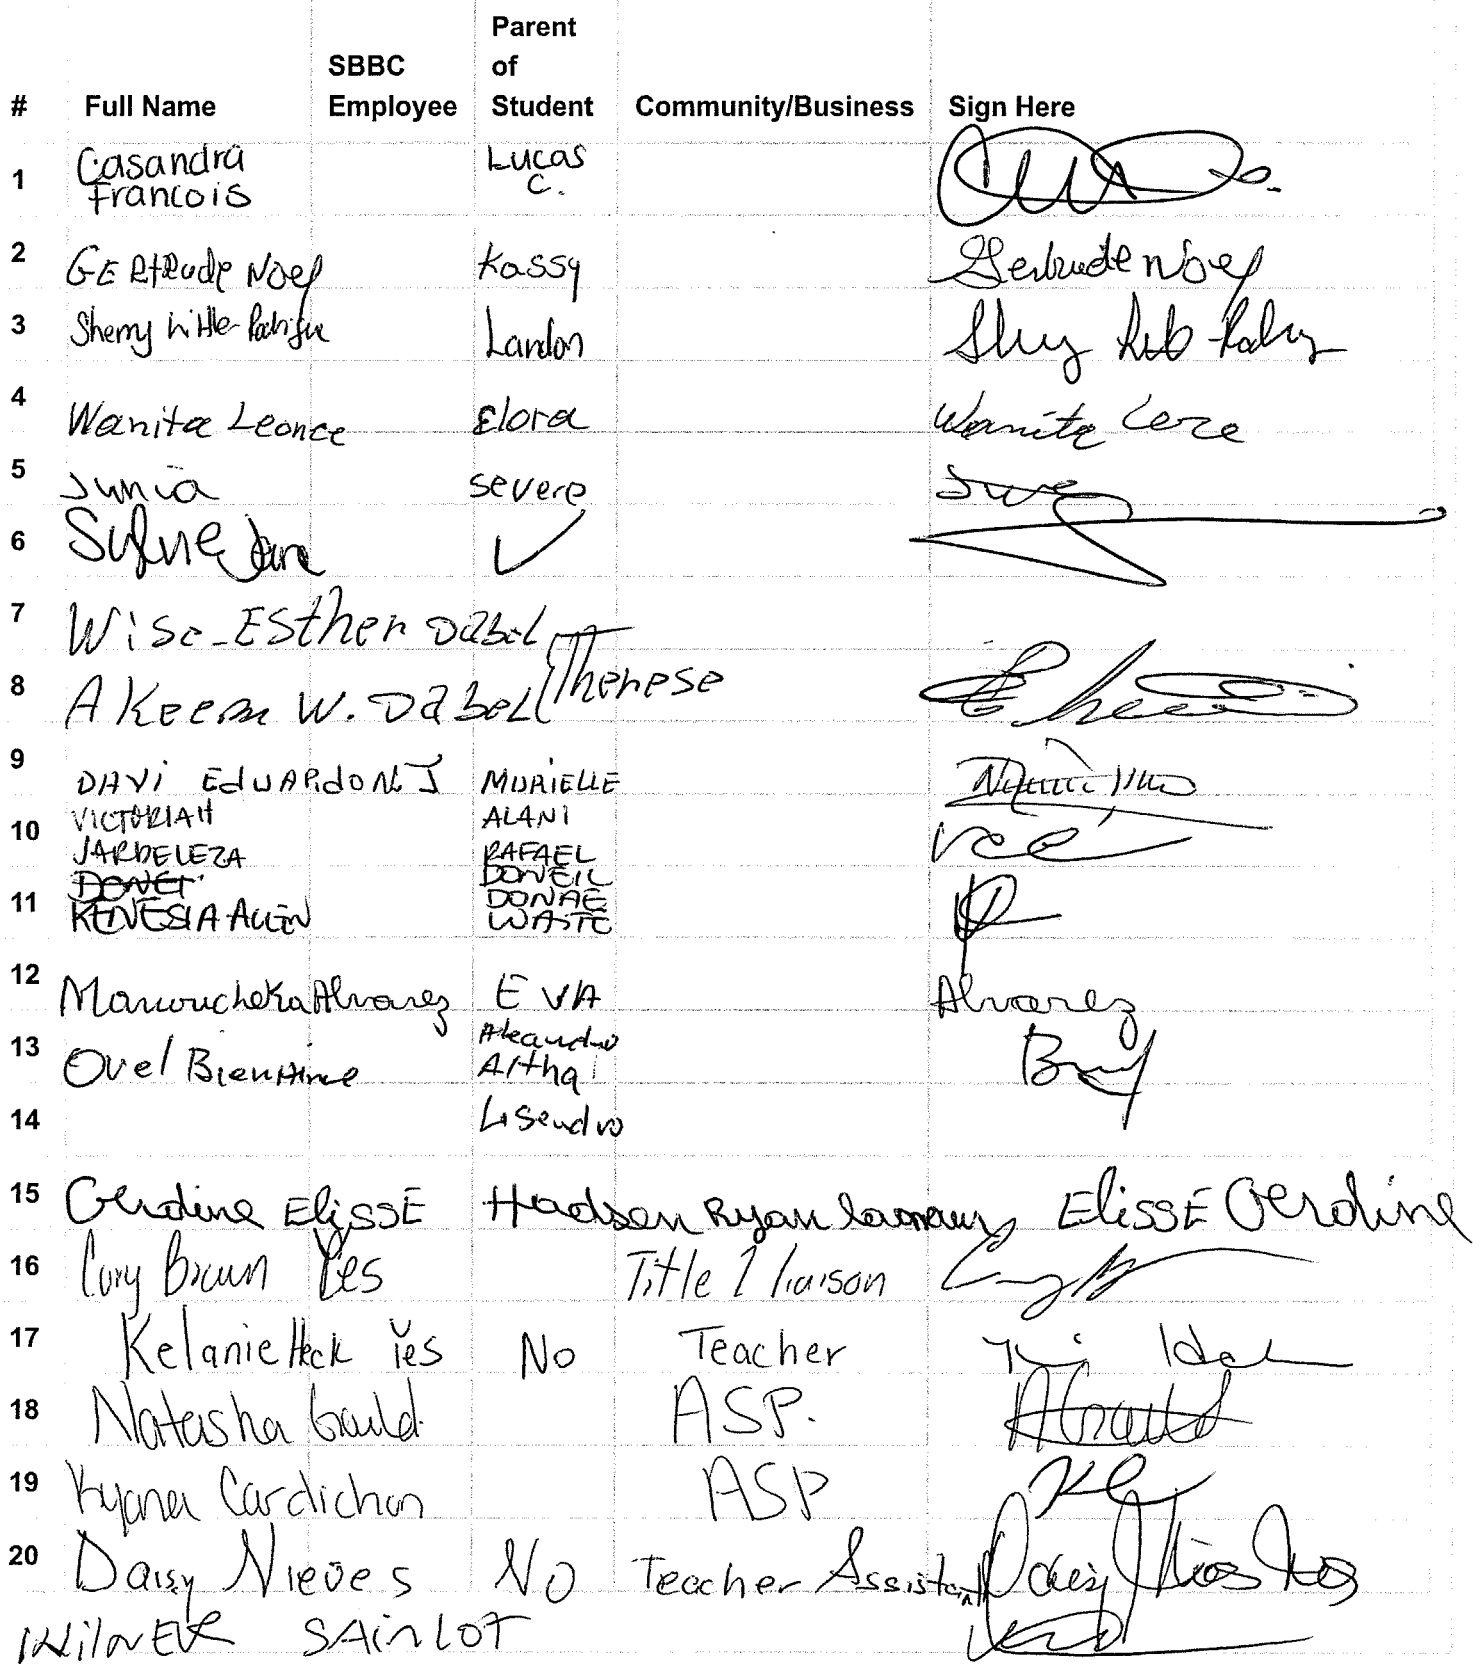 Parent
SBBC of
# Full Name Employee Student Community/Business Sign Here
1 Casandra Francois Lucas C.
2 GERtRude Noel Kassy Gertrude Noel
3 Sherry Little- Landon
4 Wanita Leonce Elora Wanita
5 Junia severe
6 ✓
7 Wise-Esther Dabel
8 AKeem W. Dabel Therese
9 DAVi EdUARdO N. J MURIELLE
10 VICTORIAH ALANI
JARDELEZA RAFAEL
DONEIL
11 KENESIA ALLEN DONAE
WAITE
12 Manoucheka Alvarez EVA Alvarez
13 Ovel Bienaime Altha
14
15 Gerdine ELiSSE Hadsen Ryan ELiSSE Gerdine
16 Cory Brown Yes Title 1 liaison
17 Kelanie Heck Yes No Teacher
18 Natasha Gauld ASP.
19 Kyana Cardichon ASP
20 Daisy Nieves No Teacher Assistant Daisy
WilnER SAiNLOT